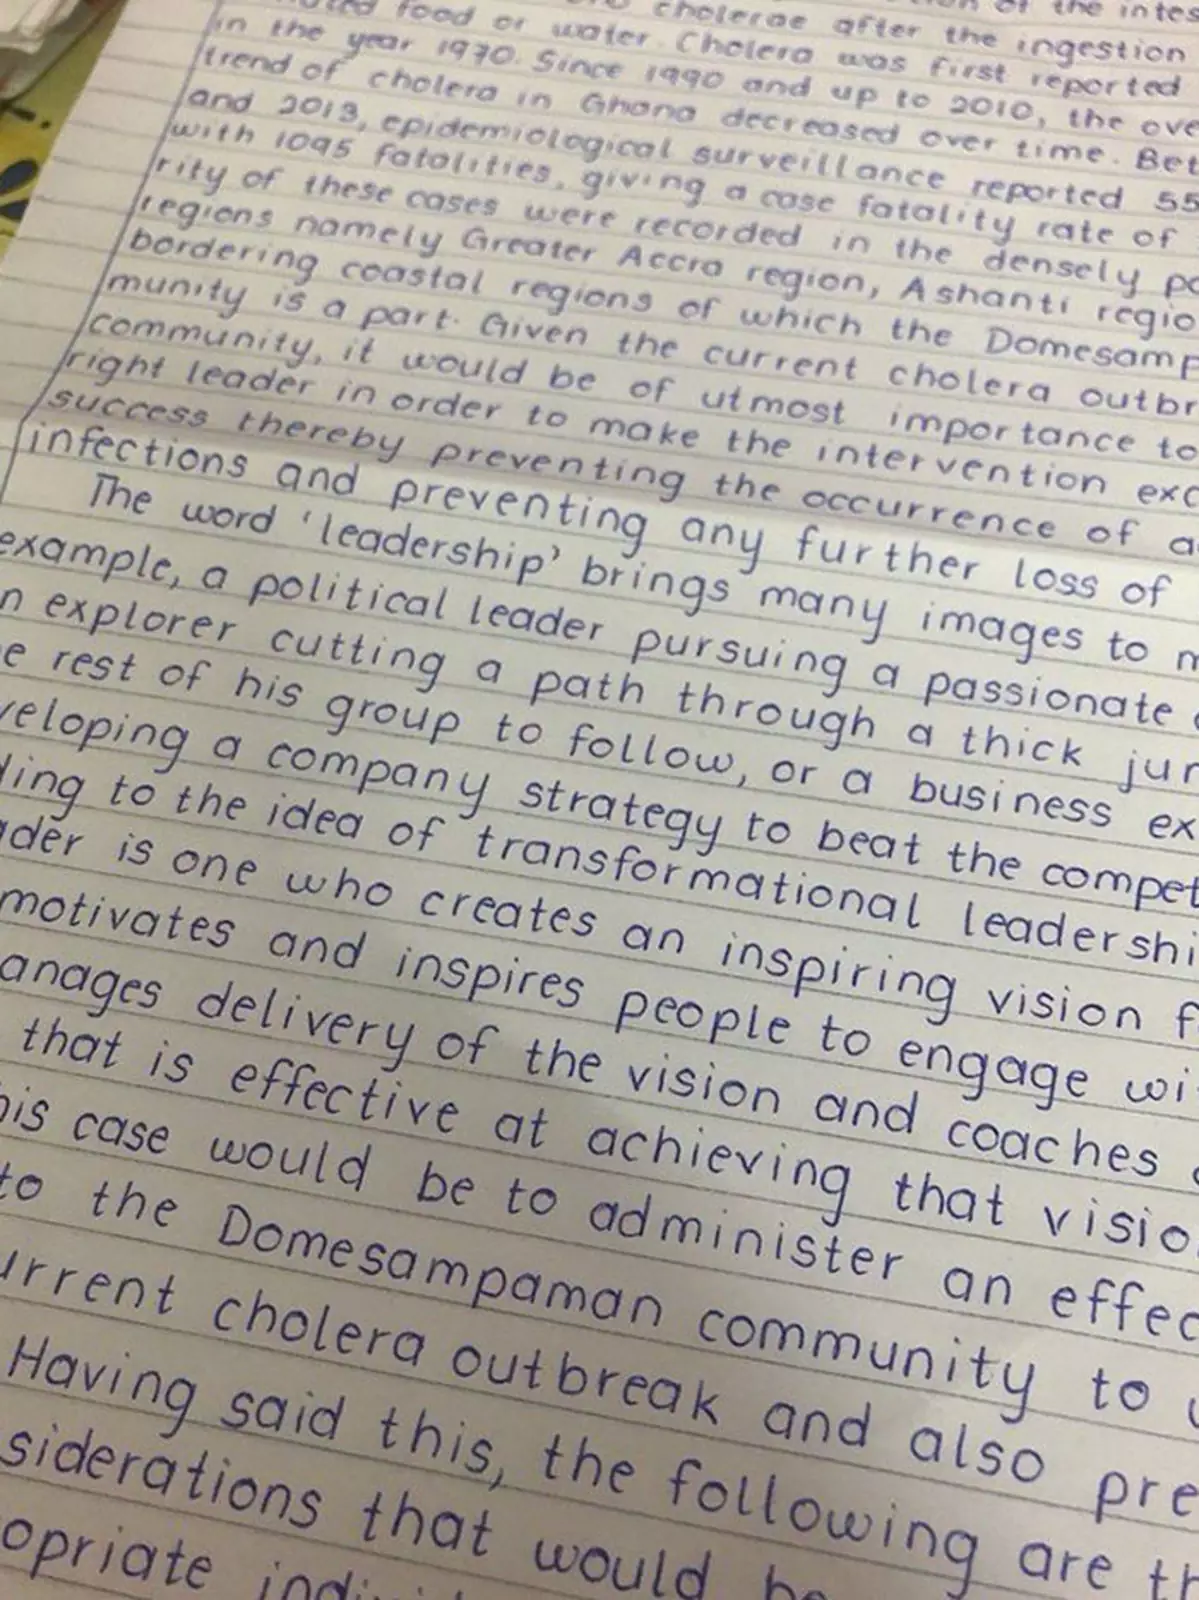 of the intes
food or cholerae after the ingestion
in the year 1970. Since water. Cholera was first reported
trend of cholera in Ghana 1990 and up to 2010, the ove
and 2013, epidemiological decreased over time. Bet
with 1095 fatalities, giving surveillance reported 55
rity of these cases were a case fatality rate of
regions namely Greater recorded in the densely po
bordering coastal regions Accra region, Ashanti regio
munity is a part. Given of which the Domesamp
community, it would be the current cholera outbr
right leader in order to of utmost importance to
success thereby preventing make the intervention exc
infections and preventing the occurrence of a
The word 'leadership' any further loss of
example, a political leader brings many images to m
n explorer cutting a pursuing a passionate
e rest of his group path through a thick jun
veloping a company to follow, or a business ex
ding to the idea of strategy to beat the compet
ader is one who creates transformational leadershi
motivates and inspires an inspiring vision f
anages delivery of people to engage wi
that is effective at the vision and coaches
his case would be achieving that visio
to the Domesampaman to administer an effec
urrent cholera outbreak community to
Having said this, and also pre
siderations that the following are th
opriate would be